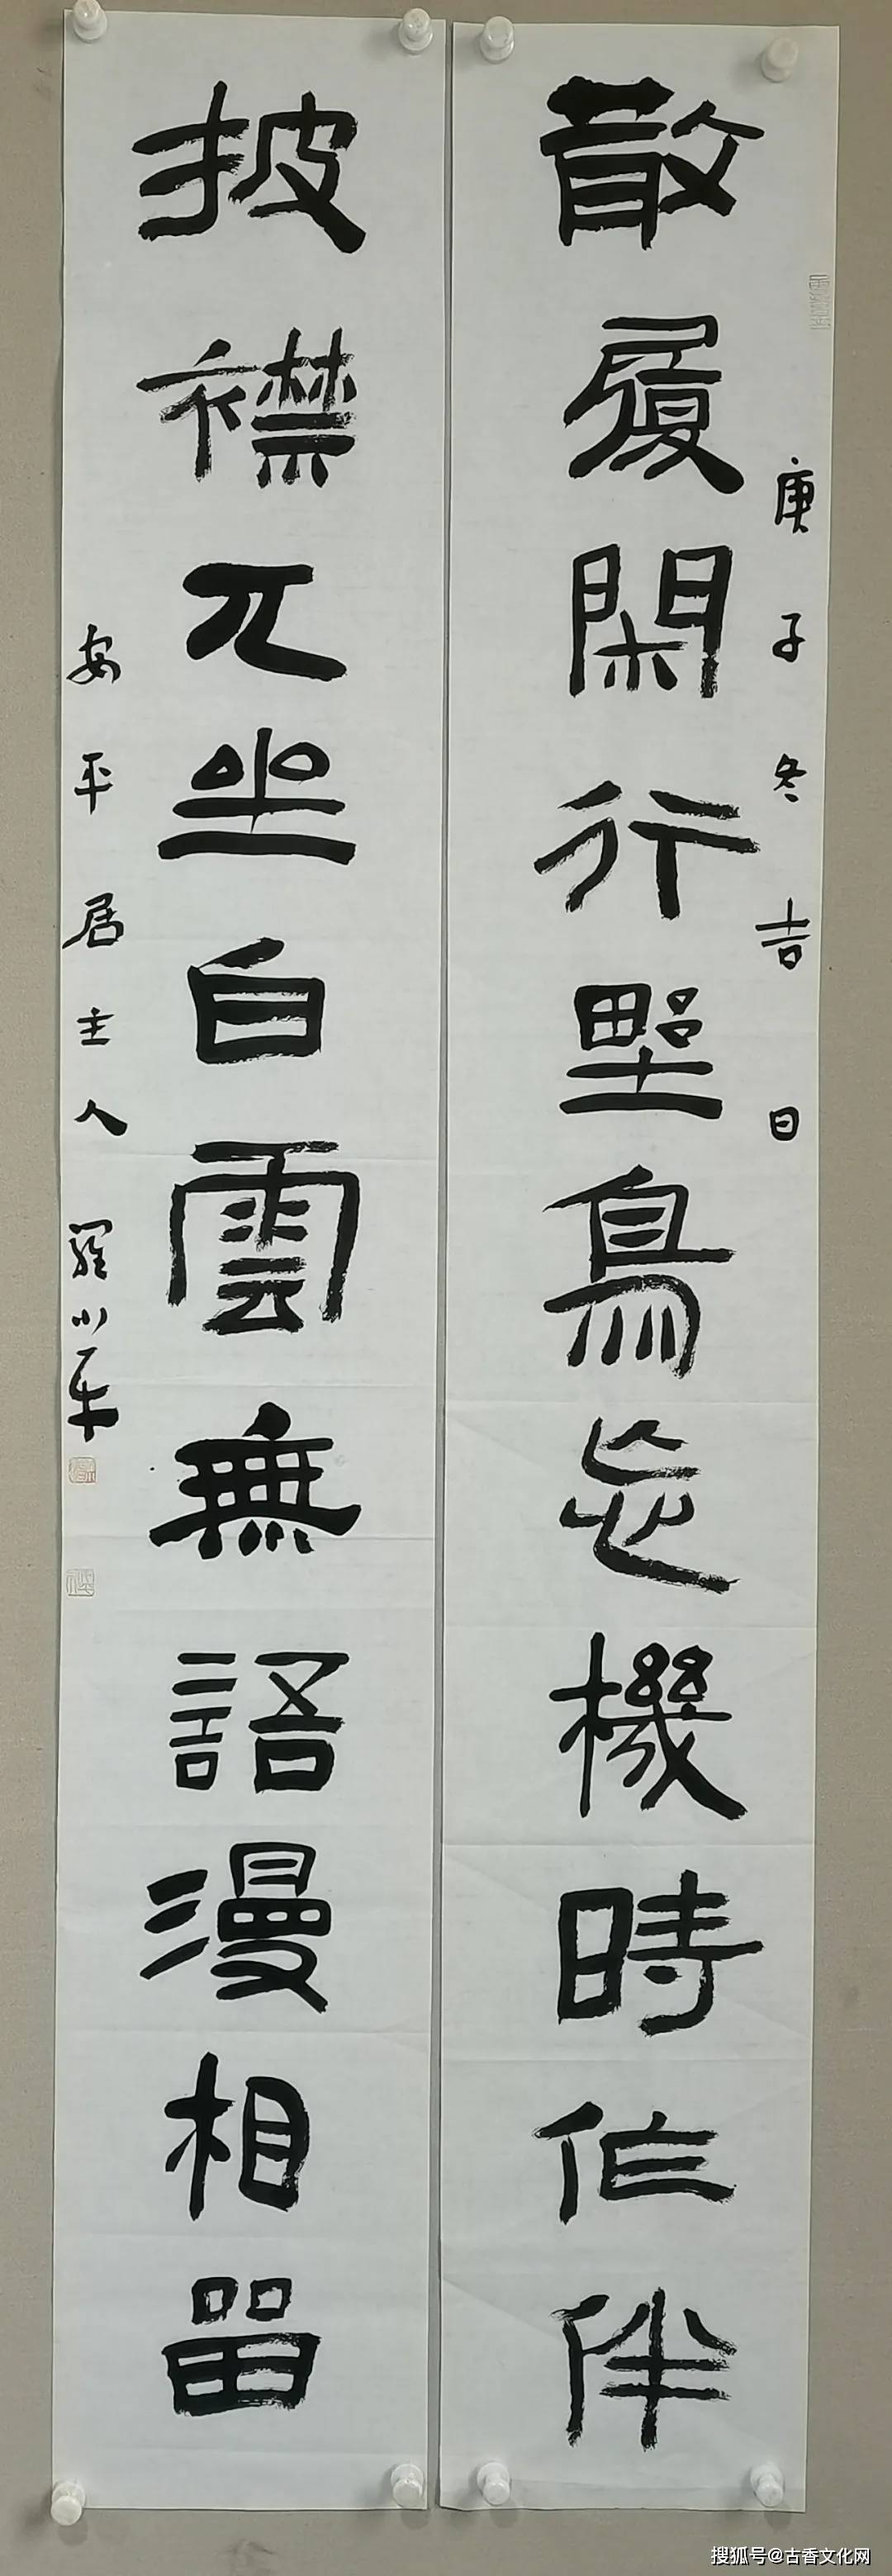 庚子冬吉日
散履閑行野鳥忘機時作伴
披襟兀坐白雲無語漫相留
安平居主人羅小平
搜狐号@古香文化网